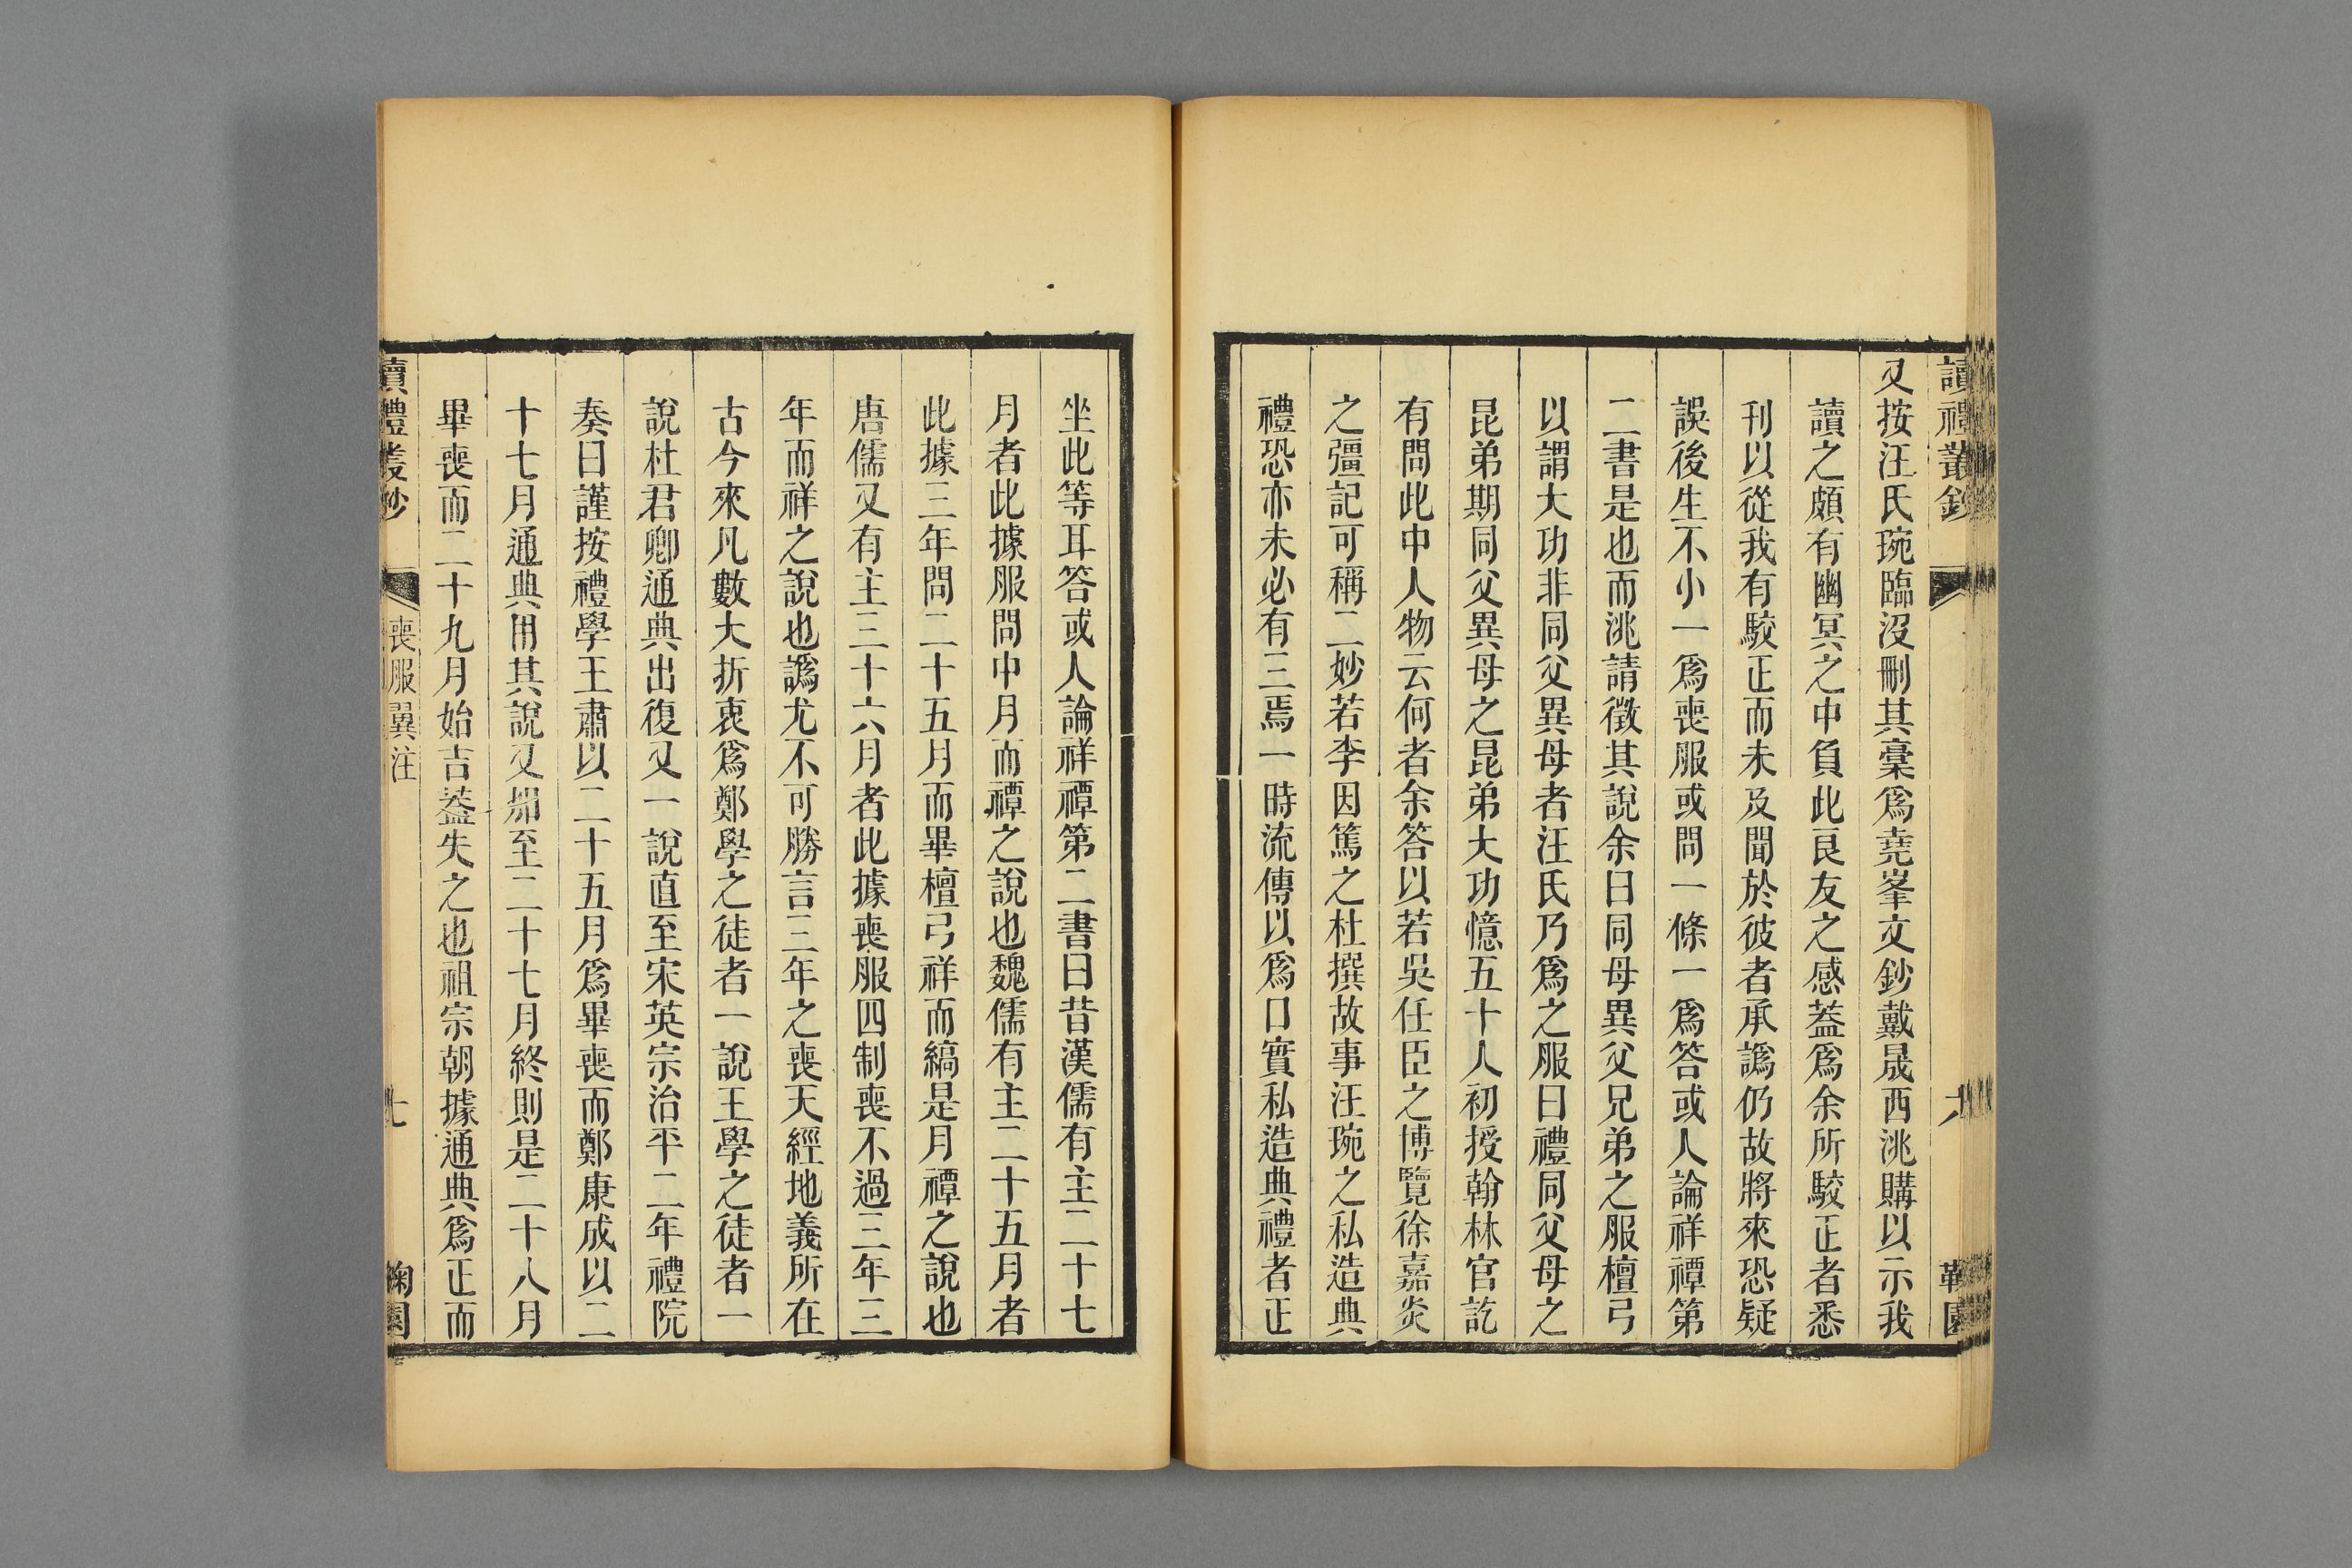 讀禮叢鈔
六
鞠園
又按汪氏琬臨沒刪其稾爲堯峯文鈔戴晟西洮購以示我
讀之頗有幽冥之中負此良友之感葢爲余所駮正者悉
刊以從我有駮正而未及聞於彼者承譌仍故將來恐疑
誤後生不小一爲喪服或問一條一爲答或人論祥禫第
二書是也而洮請徵其說余曰同母異父兄弟之服檀弓
以謂大功非同父異母者汪氏乃爲之服曰禮同父母之
昆弟期同父異母之昆弟大功憶五十人初授翰林官訖
有問此中人物云何者余答以若吳任臣之博覽徐嘉炎
之彊記可稱二妙若李因篤之杜撰故事汪琬之私造典
禮恐亦未必有三焉一時流傳以爲口實私造典禮者正
坐此等耳答或人論祥禫第二書曰昔漢儒有主二十七
月者此據服問中月而禫之說也魏儒有主二十五月者
此據三年問二十五月而畢檀弓祥而縞是月禫之說也
唐儒又有主三十六月者此據喪服四制喪不過三年三
年而祥之說也譌尤不可勝言三年之喪天經地義所在
古今來凡數大折衷爲鄭學之徒者一說王學之徒者一
說杜君卿通典出復又一說直至宋英宗治平二年禮院
奏曰謹按禮學王肅以二十五月爲畢喪而鄭康成以二
十七月通典用其說又加至二十七月終則是二十八月
畢喪而二十九月始吉葢失之也祖宗朝據通典爲正而
讀禮叢鈔
喪服翼注
七
鞠園